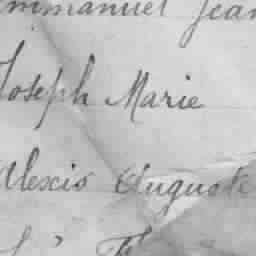 Emmanuel Jean
Joseph Marie
Alexis Auguste